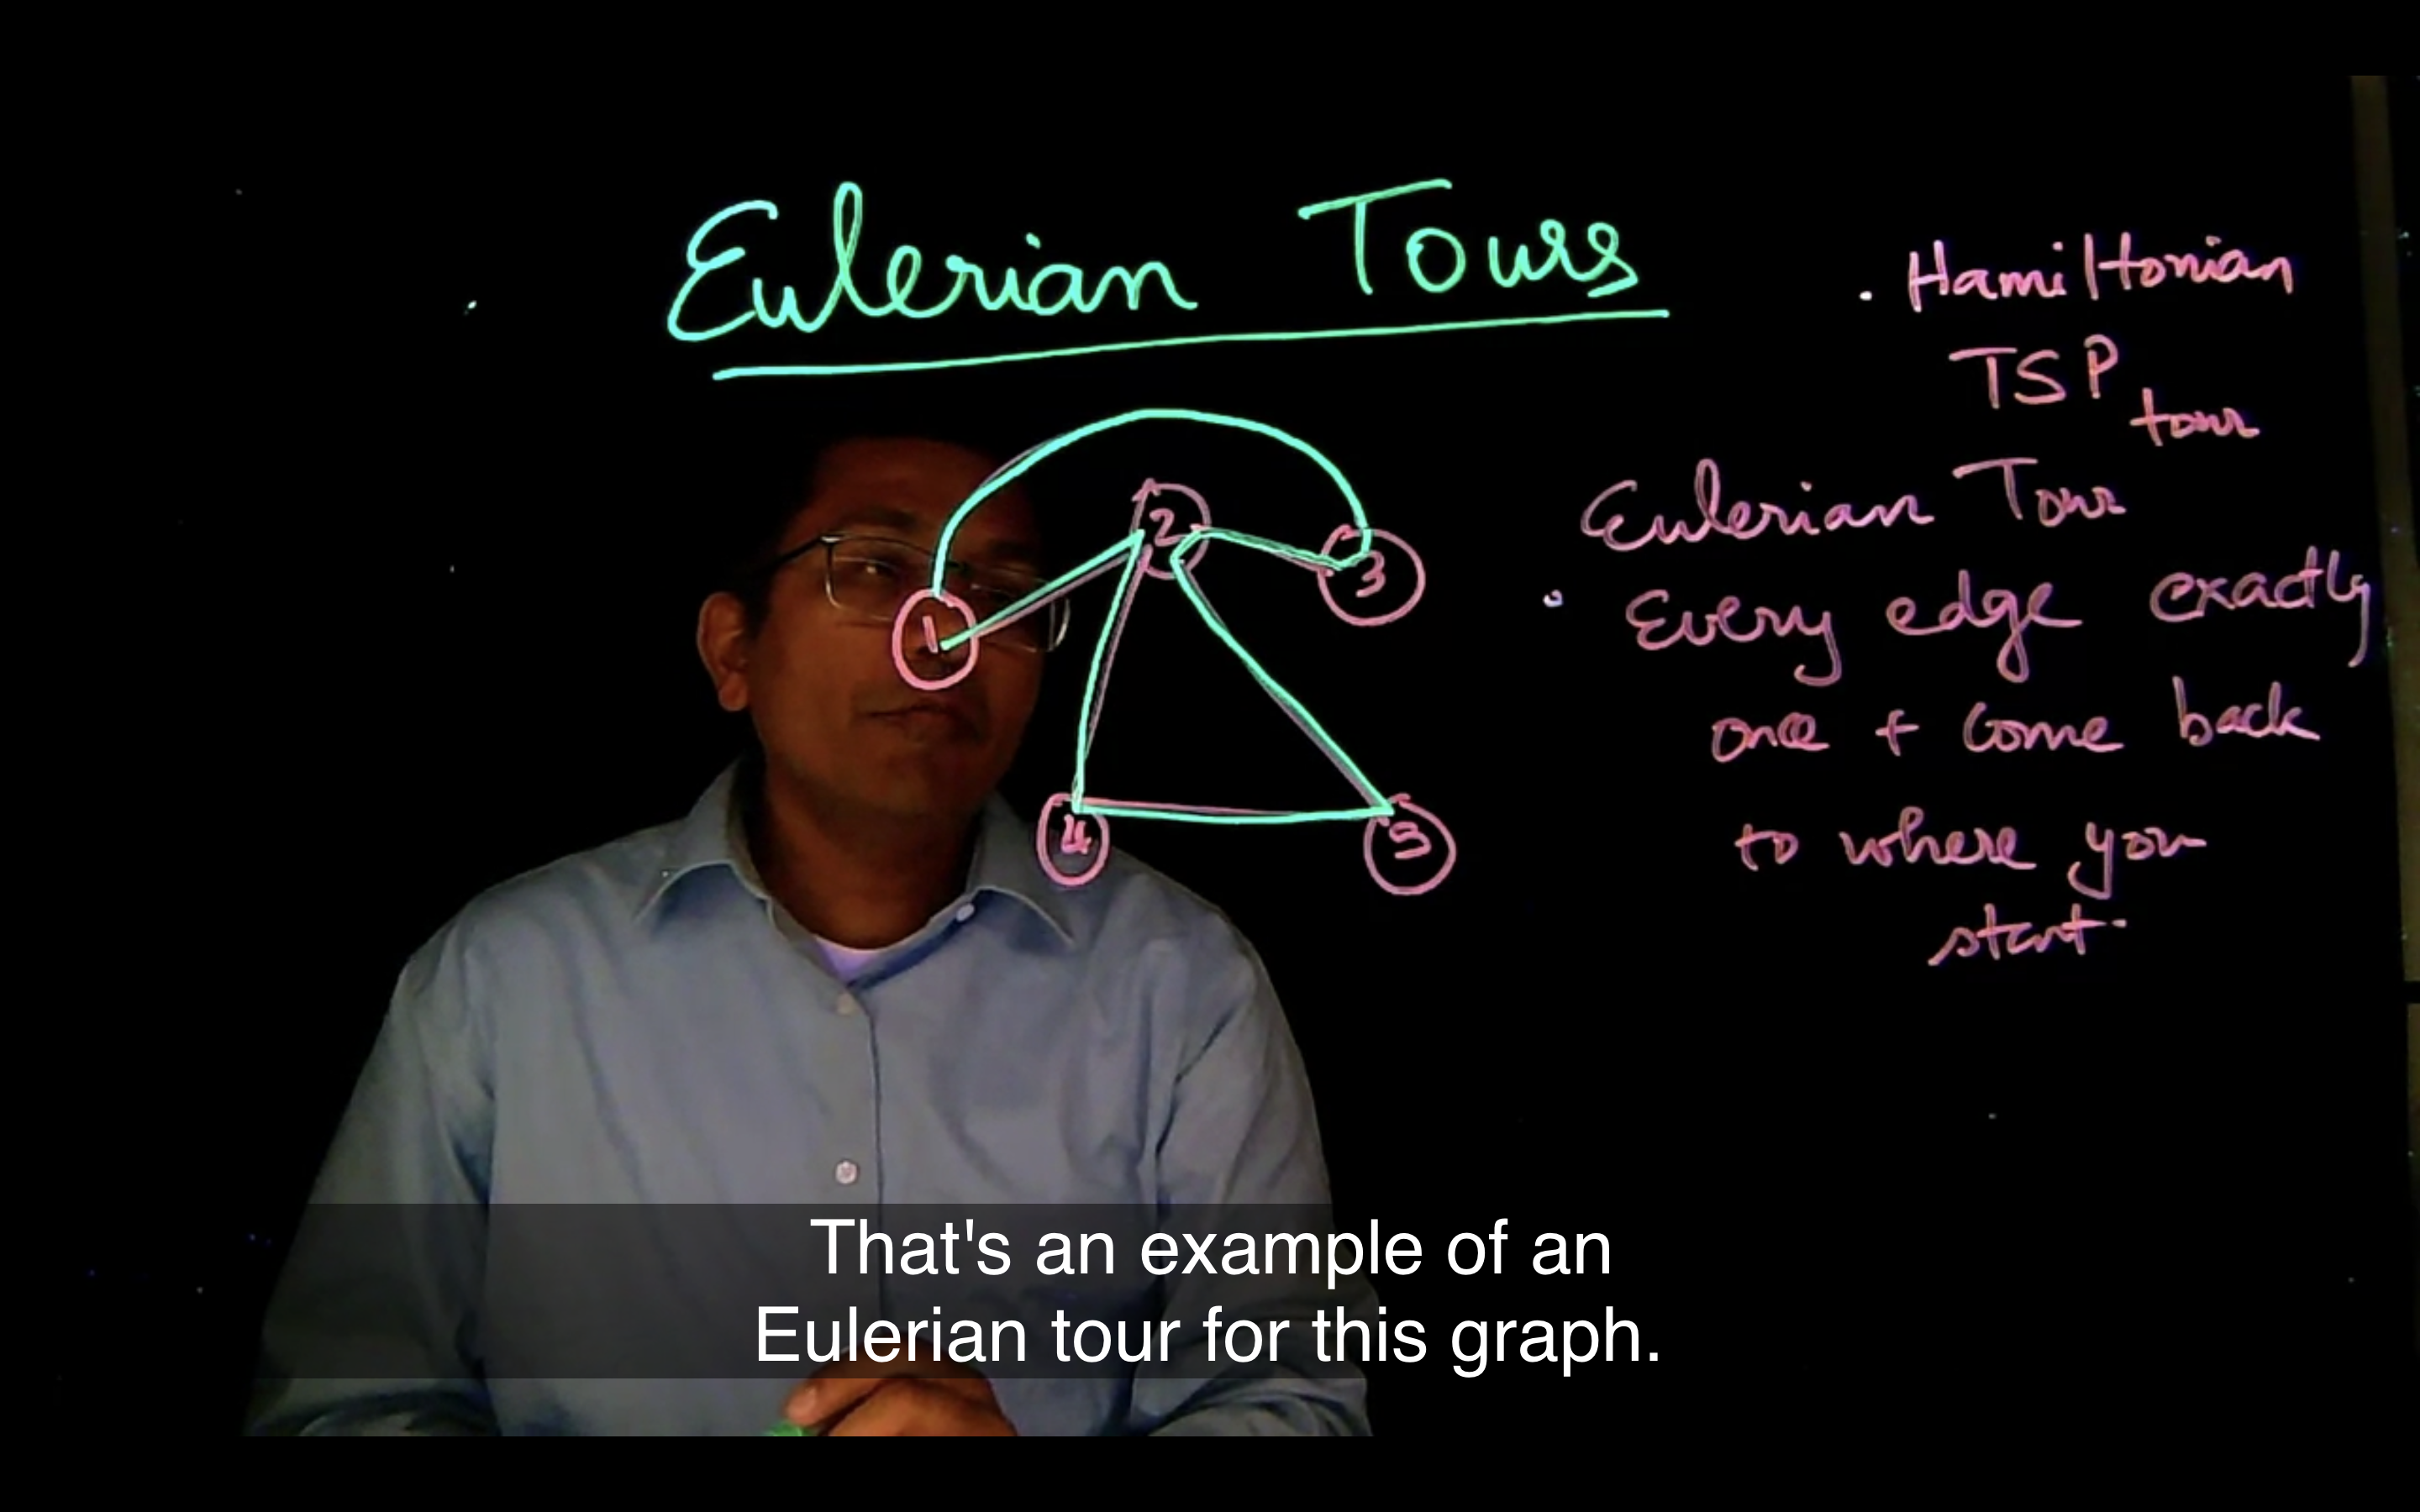 Eulerian Tours
. Hamiltonian
TSP
tour
Eulerian Tour
. Every edge exactly
once + come back
to where you
start.
2
3
1
4
5
That's an example of an
Eulerian tour for this graph.